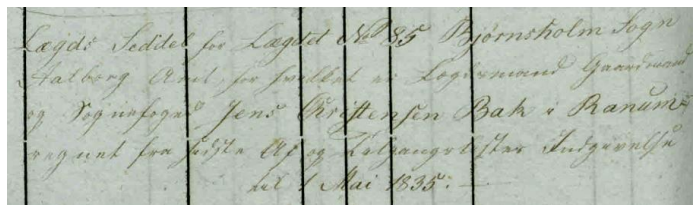 Lægds Seddel for Lægdet No 85 Bjørnsholm Sogn
Aalborg Amt, for hvilket er Lægdsmand Gaardmand
og Sognefoged Jens Christensen Bak i Ranum
regnet fra sidste Af og Tilgangslister Indgivelse
til 1 Mai 1835.